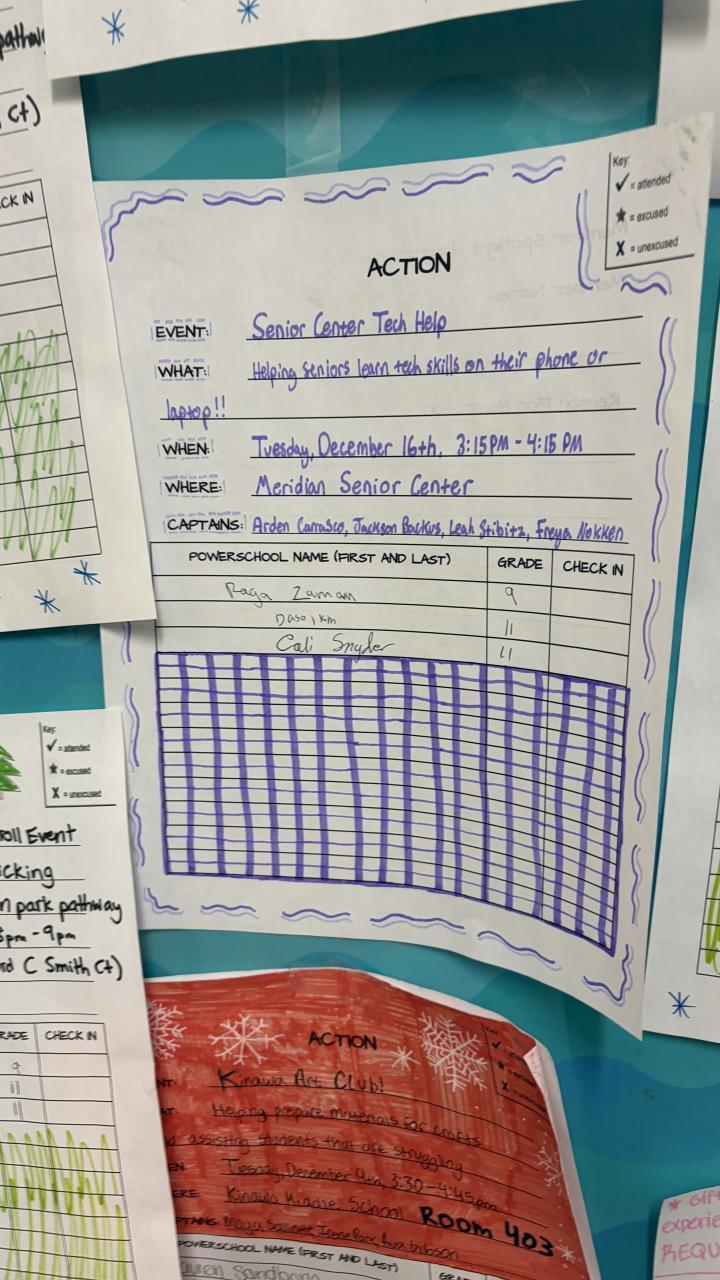 pathw
Ct)
CK IN
Key:
✓ = attended
★ = excused
X = unexcused
ACTION
EVENT: Senior Center Tech Help
WHAT: Helping seniors learn tech skills on their phone or
laptop!!
WHEN: Tuesday, December 16th, 3:15PM - 4:15 PM
WHERE: Meridian Senior Center
CAPTAINS: Arden Carrasco, Jackson Backus, Leah Stibitz, Freya Nokken
POWERSCHOOL NAME (FIRST AND LAST) GRADE CHECK IN
Raga Zaman 9
11
Cali Snyder 11
Key:
✓ = attended
★ = excused
X = unexcused
roll Event
icking
n park pathway
pm - 9pm
rd C Smith Ct)
RADE CHECK IN
9
11
11
ACTION
NT: Kinawa Art Club!
AT: Helping prepare materials for crafts
d assisting students that are struggling
EN: Tuesday, December 9th, 3:30 - 4:45pm
ERE Kinawa Middle School Room 403
PTAINS: Maya
POWERSCHOOL NAME (FIRST AND LAST)
* Gif
experie
REQU